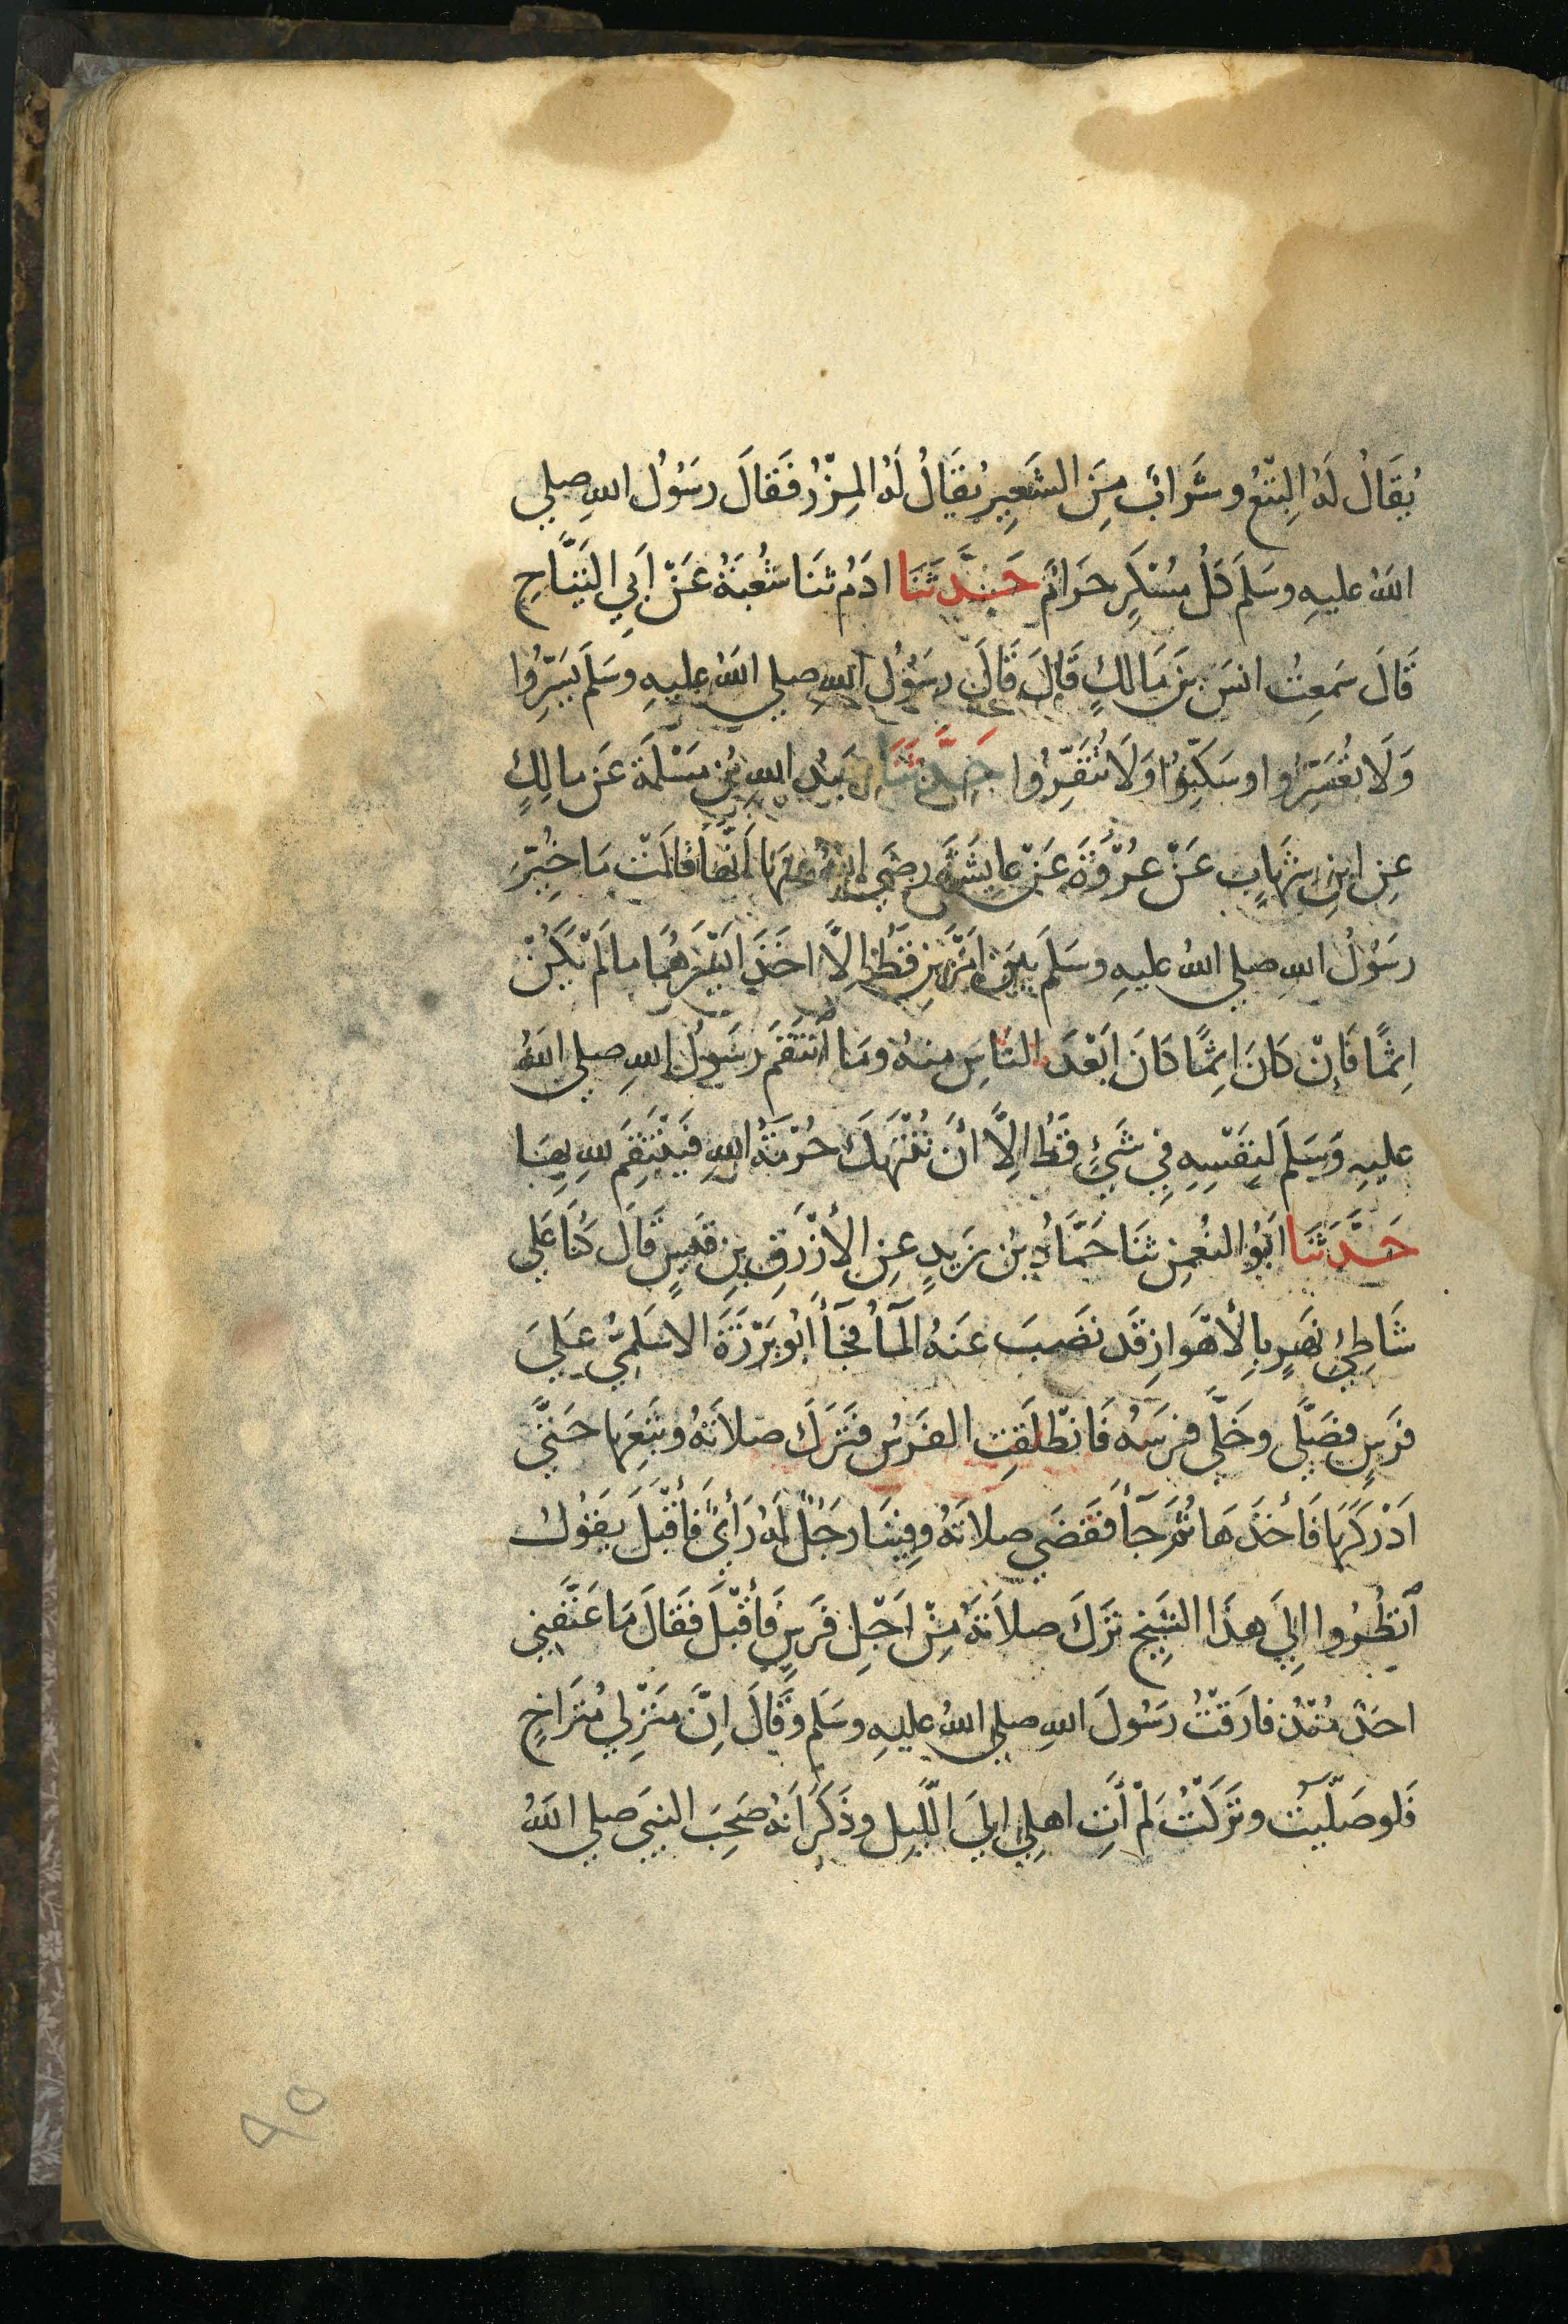 يُقَالُ لَهُ الِبتْعُ وشَرَابٌ مِنَ الشَعِيرِ يُقَالُ لَهُ المِزْرُ فَقَالَ رَسُولُ اللهِ صلي
اللهُ عليهِ وسَلَمَ كُلُ مُسْكِرٍ حَرَامٌ حَدَّثَنَا ادَمُ ثنَا شُعْبَةُ عَنْ اَبِي التَيَّاحِ
قَالَ سَمِعتُ انسَ بنَ مَالكٍ قَالَ قَالَ رسَوُلُ اللهِ صلي اللهُ عليهِ وسَلَمَ يَسِّرُوا
وَلَا تُعَسِّرُوا وسَكِّنُوا وَلَا تُنَفِّرُوا حَدَّثَنَا عَبدُ اللهِ بْنُ مَسْلَمَةَ عَن مالِكٍ
عِن ابنِ شهَابٍ عَنْ عُرْوَةَ عَنْ عايشَةَ رضَي اللهُ عنهَا اَنَّهَا قَالَتْ مَا خُيِّرَ
رسَوُلُ اللهِ صلي اللهُ عليهِ وسَلَمَ بَينَ اَمْرَينِ قَطُّ اِلَّا اخَذَ اَيْسَرَهُمَا مالَمْ يَكُنْ
اِثمًا فَاِنْ كَانَ اِثمًا كَانَ اَبْعَدَ النَاسِ منهُ ومَا انْتَقَمَ رسَوُلُ اللهِ صلي اللهُ
عليهِ وَسَلَمَ لنِفَسِهِ فِي شَيْءٍ قَطُّ اِلَّا اَنْ تُنْتَهَكَ حُرْمَةُ اللهِ فَيَنْتَقِمَ للهِ بِهَا
حَدَّثَنَا اَبُو النُعمنِ ثنَا حَمَّادُ بنُ زَيدٍ عِنِ الأزْرَقِ بنِ قَيسٍ قَالَ كُنَا عَلَي
شَاطِئِ نَهَرٍ بِالأهْوَازِ قَد نَضَبَ عَنهُ الَمآءُ فجَآءَ اَبُو بَرْزَةَ الاسَلمِيُّ عَلَيَ
فَرَسٍ فصَلَّى وخَلَّى فرَسَهُ فَانْطَلَقَتِ الفَرَسُ فتَرَكَ صلاتَهُ وتَبِعَهَا حَتَّي
اَدْرَكَهَا فَأخَذَهَا ثُمَ جَآءَ فَقَضَي صلاتَهُ وفِينَا رجَلٌ لَهُ رَأيٌ فَأقْبَلَ يَقوُلُ
انْظُرُوا اِلَي هذَا الشَيخِ تَرَكَ صلاتَهُ مِنْ اَجْلِ فَرَسٍ فَأقْبَلَ فَقَالَ مَا عَنَّفَنِي
احَدٌ مُنْذُ فارَقْتُ رسَوُلَ اللهِ صلي اللهُ عليهِ وسَلَم وقَالَ اِنَّ مَنْزِلِي مُتَرَاخٍ
فَلو صَلَّيتُ وتَرَكْتُ لَمْ اٰتِ اهلِي اِلَيَ اللَّيلِ وذَكَرَ اَنهُ صَحِبَ النبيَ صلي اللهُ
٩٥